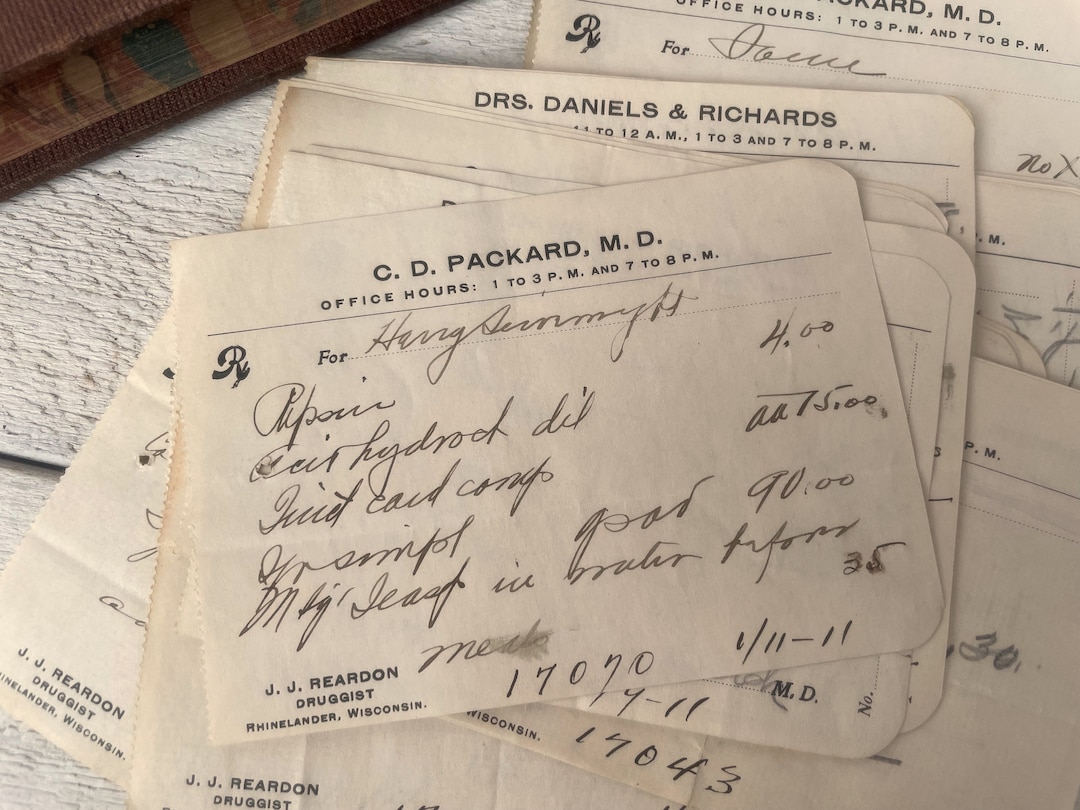 PACKARD, M. D.
OFFICE HOURS: 1 TO 3 P. M. AND 7 TO 8 P. M.
For
no
DRS. DANIELS & RICHARDS
11 TO 12 A. M., 1 TO 3 AND 7 TO 8 P. M.
C. D. PACKARD, M. D.
OFFICE HOURS: 1 TO 3 P. M. AND 7 TO 8 P. M.
For Harry
Pepsin 4.00
acid hydroch dil aa 15.00
Tinct card comp
Syr simpl quad 90.00
M Sig 1 teasp in water before
meals 35
17070 1/11-11
J. J. REARDON
DRUGGIST
RHINELANDER, WISCONSIN.
M. D.
No.
7-11
17043
WISCONSIN.
30.
P. M.
. M.
J. J. REARDON
DRUGGIST
RHINELANDER, WISCONSIN.
J. J. REARDON
DRUGGIST